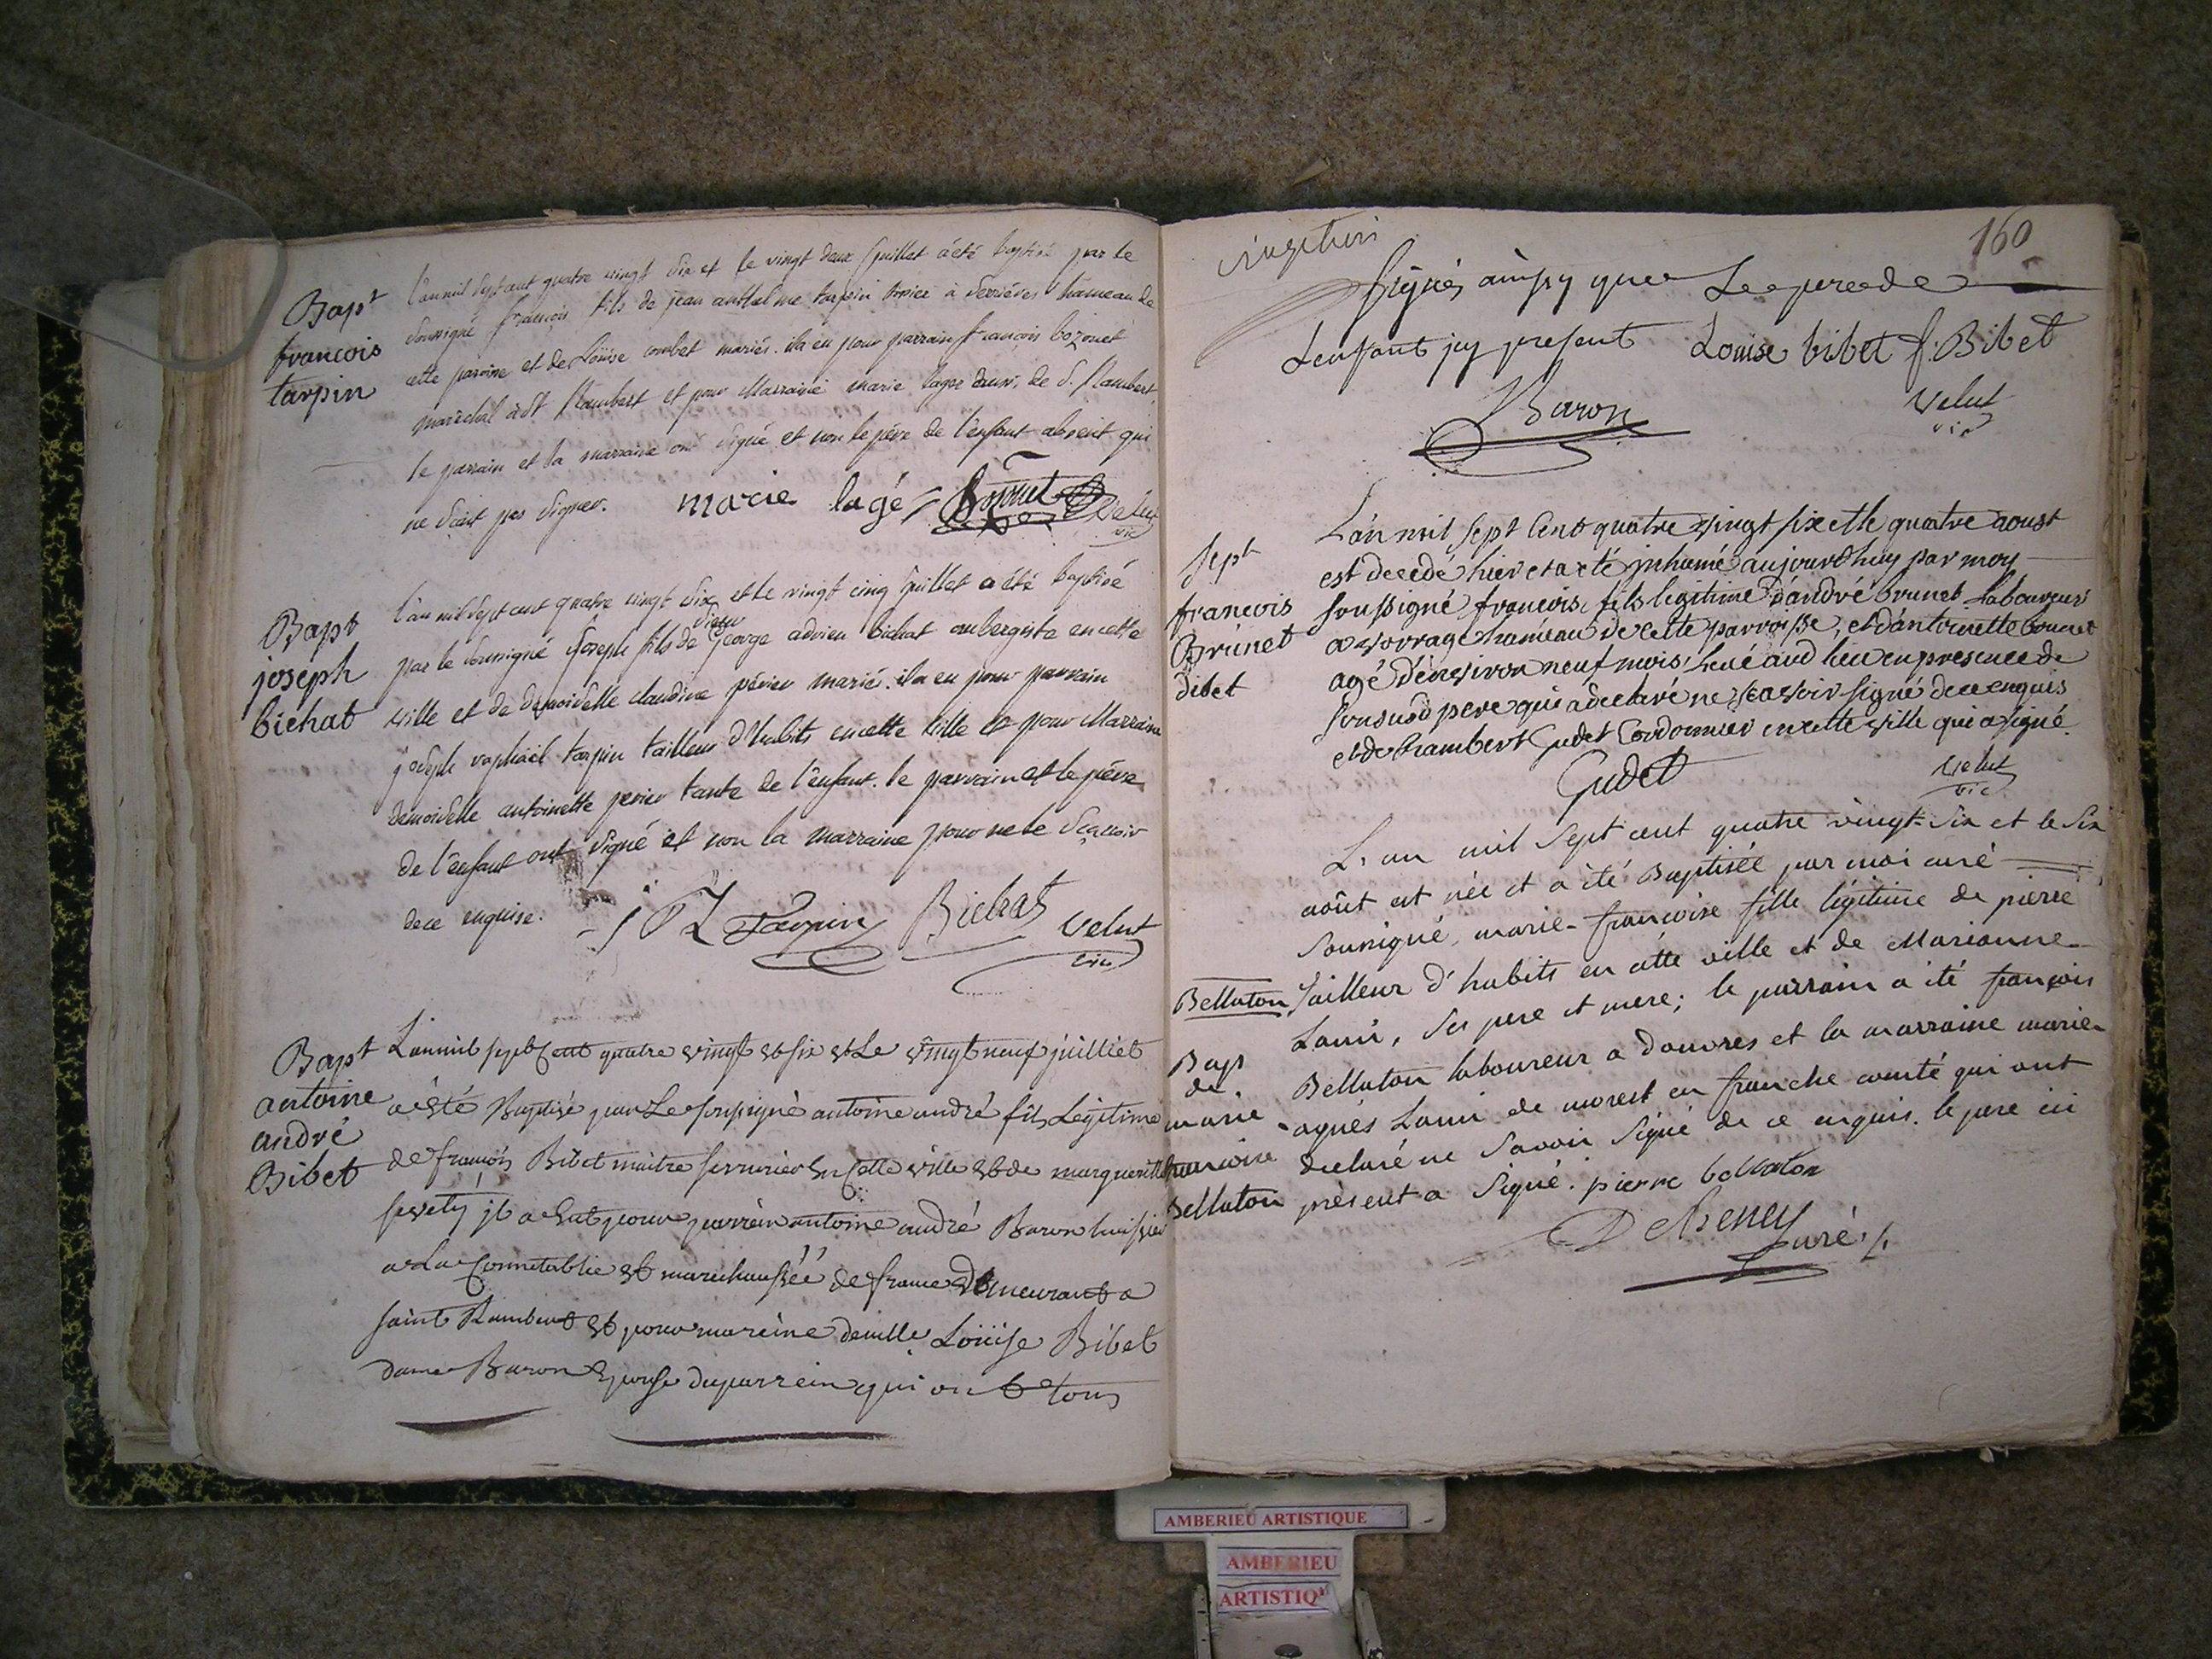 Bapt
francois
tarpin
l'an mil sept cent quatre vingt six et le vingt deux Juillet a été baptisé par le
soussigné françois fils de jean anthelme tarpin à Serrières hameau de
cette paroisse et de Louise combet mariés. il a eu pour parrain francois bozonet
maréchal à St Rambert et pour Marraine marie lagé de S. Rambert
le parrain et la marraine ont signé et non le père de l'enfant absent qui
ne scait pas signer. marie lagé Bozonet Velut
vic
Bapt
joseph
bichat
l'an mil sept cent quatre vingt six et le vingt cinq Juillet a été baptisé
par le soussigné Joseph fils de sieur George adrien bichat aubergiste en cette
ville et de demoiselle claudine périer mariés. il a eu pour parrain
joseph raphaël tarpin tailleur d'habits en cette ville et pour Marraine
demoiselle antoinette perier tante de l'enfant. le parrain et le père
de l'enfant ont signé et non la marraine pour ne le sçavoir
de ce enquise. j R Tarpin Bichat Velut
vic
Bapt
antoine
andré
Bibet
L'an mil sept Cent quatre vingt et six et Le vingt neuf juilliet
a esté Baptisé par Le soussigné antoine andré fils Légitime
de francois Bibet maitre serrurier En Cette ville et de marguerite
sevety jl a Eut pour parrein antoine andré Baron huissier
a La Connetablie et marechaussée de france Demeurant a
saint Rambert et pour mareine demlle Loüise Bibet
dame Baron Epouse du parrein qui ont tous
160
signés ainsy que Le pere de
Lenfant jcy present Louise bibet f. Bibet
Baron Velut
vic
Sept
francois
Brunet
dibet
L'an mil sept Cent quatre vingt six et le quatre aoust
est decedé hier et a eté jnhumé aujourd'huy par moy
soussigné francois, fils legitime d'andré brunet laboureur
a vorrage hameau de cette parroisse, et d'antoinette bouvet
agé d'environ neuf mois, en presence de
son susd pere qui a declaré ne scavoir signé de ce enquis
et de Rambert Gudet Cordonnier en cette ville qui a signé.
Gudet Velut
vic
L'an mil sept cent quatre vingt-six et le six
août est née et a été Baptisée par moi curé
soussigné, marie-françoise fille légitime de pierre
Bellaton Tailleur d'habits en cette ville et de Marianne
Lami, ses pere et mere; le parrain a été françois
Bellaton laboureur a douvres et la marraine marie-
agnés Lami de morest en franche comté qui ont
declaré ne savoir Signé de ce enquis. le pere ici
présent a Signé. pierre bellaton
Bap
de
marie
francoise
bellaton
curé